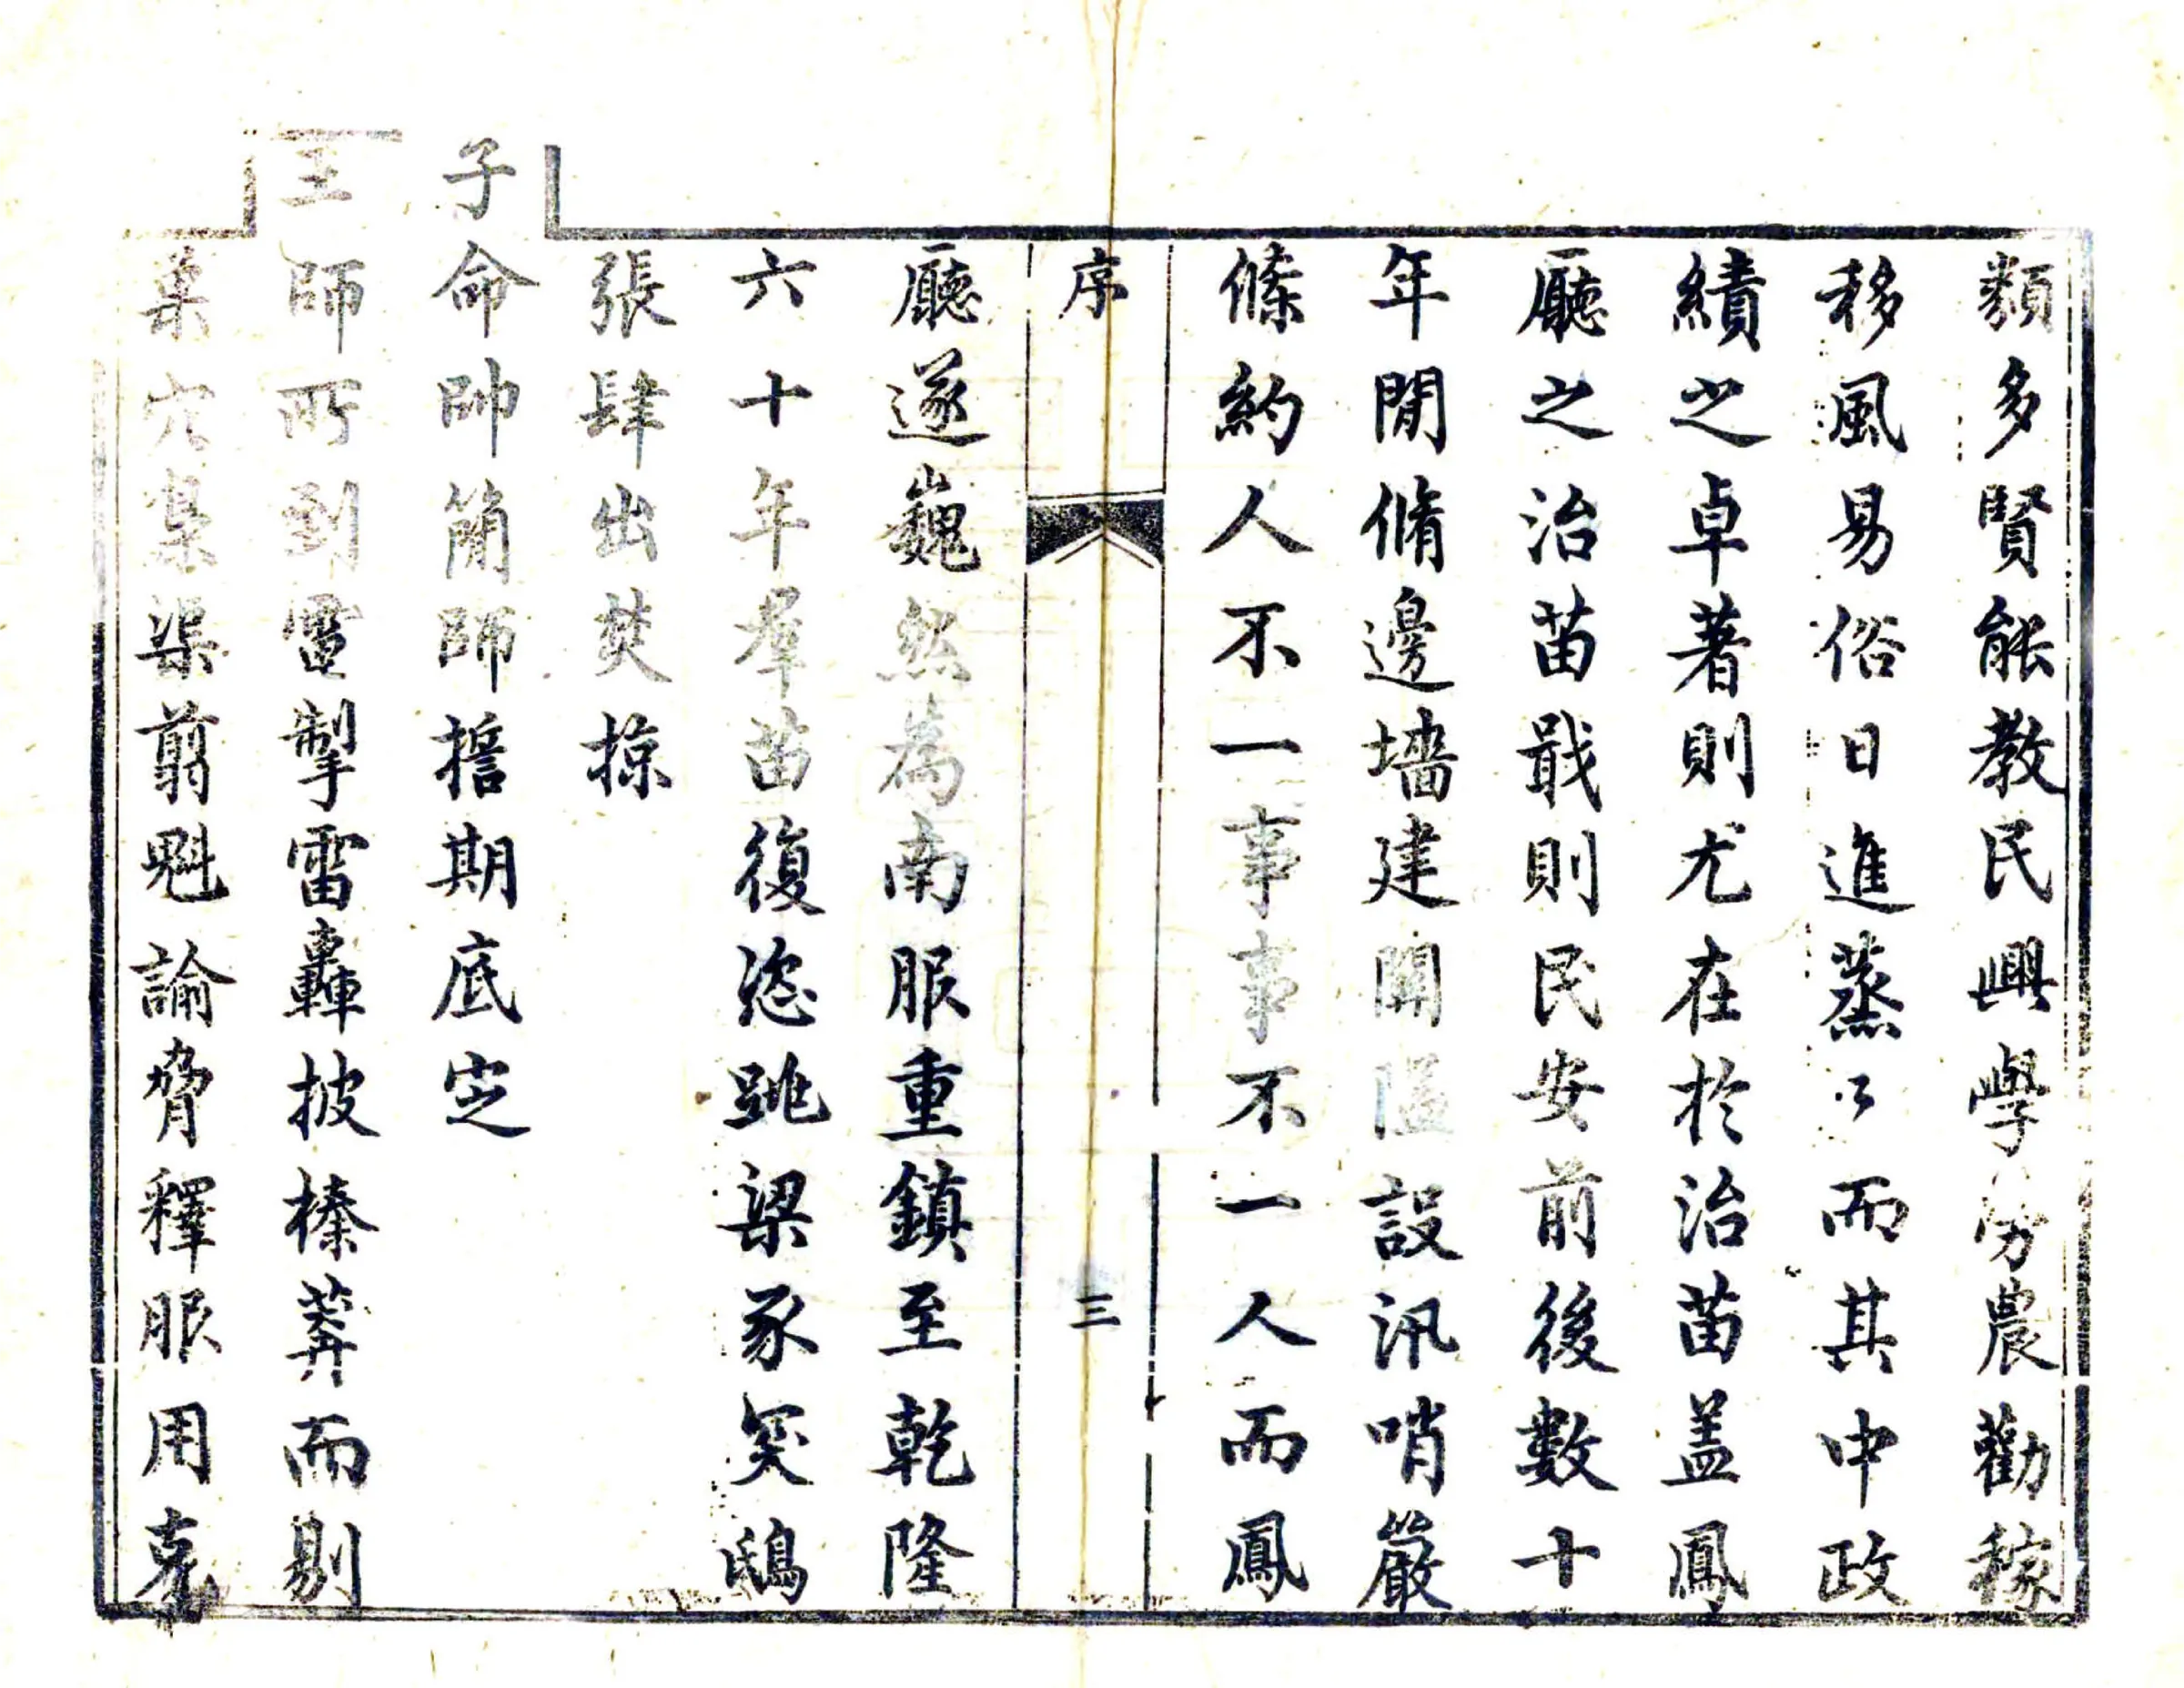 類多賢能教民興學勸農勸稼
移風易俗日進蒸々而其中政
績之卓著則尤在於治苗蓋鳳
廳之治苗戢則民安前後數十
年間脩邊墻建關隘設汛哨嚴
條約人不一事事不一人而鳳
序
三
廳遂巍然為南服重鎮至乾隆
六十年羣苗復恣跳梁豕突鴟
張肆出焚掠
子命帥簡師誓期底定
王師所到電掣雷轟披榛莽而剔
巢穴梟渠翦魁諭脅釋服用克